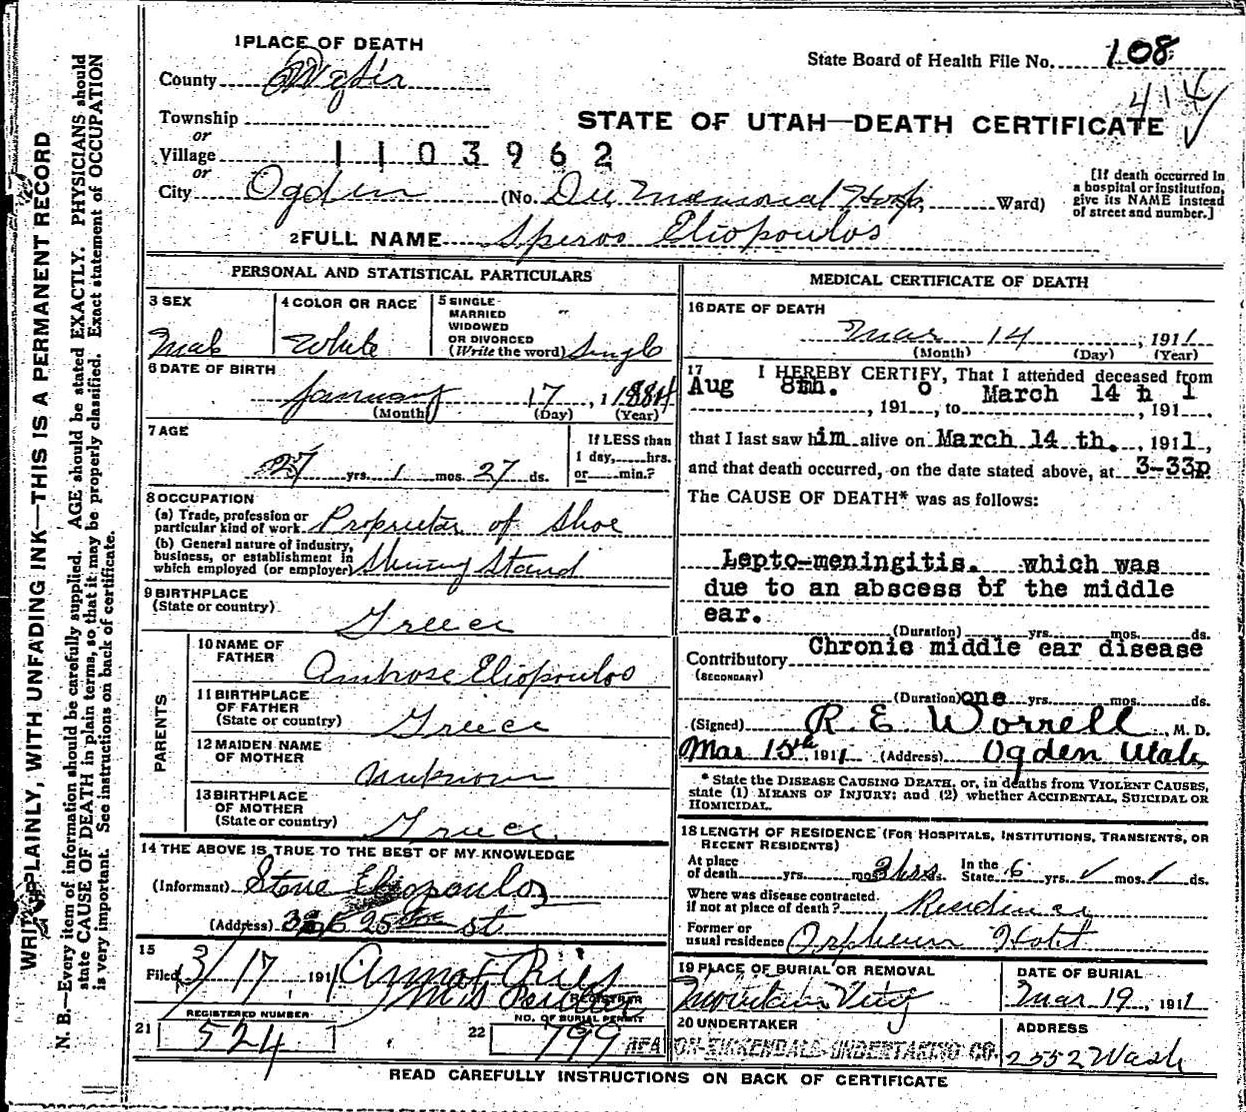 1 PLACE OF DEATH
State Board of Health File No. 108
414
County
Township
STATE OF UTAH—DEATH CERTIFICATE
or
Village 1103962
or
City Ogden (No. Dee Memorial Hosp, Ward)
[If death occurred in
a hospital or institution,
give its NAME instead
of street and number.]
2 FULL NAME Speros Eliopoulos
PERSONAL AND STATISTICAL PARTICULARS
3 SEX Male
4 COLOR OR RACE White
5 SINGLE
MARRIED
WIDOWED
OR DIVORCED
(Write the word) Single
6 DATE OF BIRTH
January 17, 1884
(Month) (Day) (Year)
7 AGE
27 yrs. 1 mos. 27 ds.
If LESS than
1 day, hrs.
or min.?
8 OCCUPATION
(a) Trade, profession or
particular kind of work Proprietor of Shoe
(b) General nature of industry,
business, or establishment in
which employed (or employer) Shining Stand
9 BIRTHPLACE
(State or country)
Greece
PARENTS
10 NAME OF
FATHER
Ambrose Eliopoulos
11 BIRTHPLACE
OF FATHER
(State or country) Greece
12 MAIDEN NAME
OF MOTHER
Unknown
13 BIRTHPLACE
OF MOTHER
(State or country) Greece
14 THE ABOVE IS TRUE TO THE BEST OF MY KNOWLEDGE
(Informant) Steve Eliopoulos
(Address) 25th St.
15
Filed 3/17 191
REGISTRAR
REGISTERED NUMBER
21 524
NO. OF BURIAL PERMIT
22 799
MEDICAL CERTIFICATE OF DEATH
16 DATE OF DEATH
Mar 14, 1911
(Month) (Day) (Year)
17 I HEREBY CERTIFY, That I attended deceased from
Aug 8th. March 14 h 1
, 191 , to , 191 .
that I last saw him alive on March 14 th. , 1911,
and that death occurred, on the date stated above, at 3-33p
The CAUSE OF DEATH* was as follows:
Lepto-meningitis. which was
due to an abscess of the middle
ear.
(Duration) yrs. mos. ds.
Contributory Chronic middle ear disease
(SECONDARY)
(Duration) one yrs. mos. ds.
(Signed) R. E. Worrell, M. D.
Mar 15th, 1911 (Address) Ogden Utah
* State the DISEASE CAUSING DEATH, or, in deaths from VIOLENT CAUSES,
state (1) MEANS OF INJURY; and (2) whether ACCIDENTAL, SUICIDAL OR
HOMICIDAL.
18 LENGTH OF RESIDENCE (FOR HOSPITALS, INSTITUTIONS, TRANSIENTS, OR
RECENT RESIDENTS)
At place
of death yrs. mos. 3 hrs ds. In the
State 6 yrs. mos. ds.
Where was disease contracted.
if not at place of death? Residence
Former or
usual residence Orpheum Hotel
19 PLACE OF BURIAL OR REMOVAL
Mountain View
DATE OF BURIAL
Mar 19, 1911
20 UNDERTAKER
KIRKENDALL UNDERTAKING CO.
ADDRESS
2552 Wash
READ CAREFULLY INSTRUCTIONS ON BACK OF CERTIFICATE
WRITE PLAINLY, WITH UNFADING INK—THIS IS A PERMANENT RECORD
N. B.—Every item of information should be carefully supplied. AGE should be stated EXACTLY. PHYSICIANS should
state CAUSE OF DEATH in plain terms, so that it may be properly classified. Exact statement of OCCUPATION
is very important. See instructions on back of certificate.